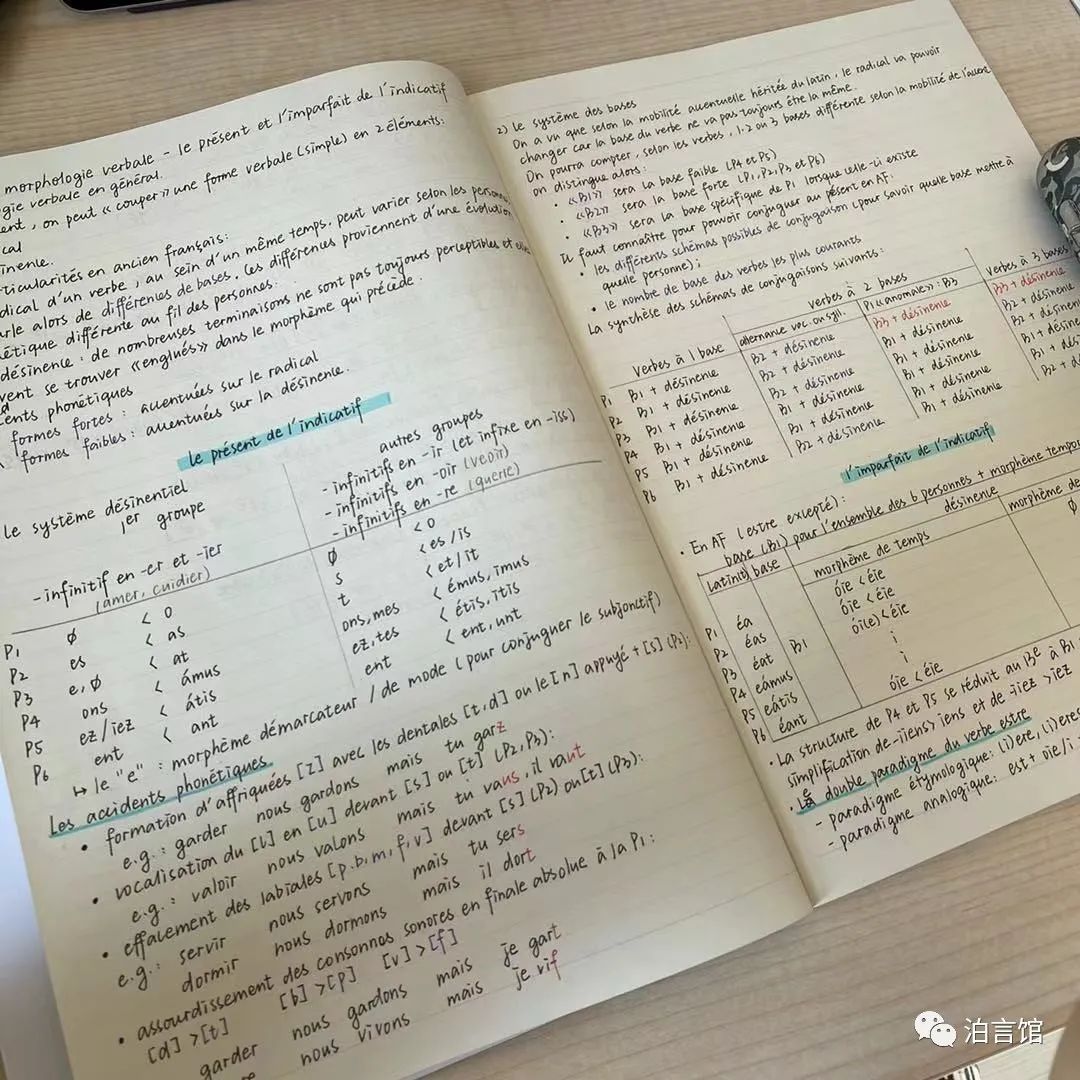 morphologie verbale - le présent et l'imparfait de l'indicatif
gie verbale en général.
ent, on peut «couper» une forme verbale (simple) en 2 éléments:
cal
sinence.
ticularités en ancien français:
dical d'un verbe, au sein d'un même temps, peut varier selon les personnes
arle alors de différentes bases. Les différences proviennent d'une évolution
étique différente au fil des personnes.
désinence: de nombreuses terminaisons ne sont pas toujours perceptibles et
vent se trouver «englués» dans le morphème qui précède.
ents phonétiques
formes fortes: accentuées sur le radical
formes faibles: accentuées sur la désinence.
le présent de l'indicatif
le système désinentiel
1er groupe
autres groupes
- infinitif en -er et -ier
(amer, cuidier)
- infinitifs en -ir (et infixe en -iss)
- infinitifs en -oir (veoir)
- infinitifs en -re (querre)
P1 ø < o ø < o
P2 es < as s < es/is
P3 e, ø < at t < et/it
P4 ons < ámus ons, mes < émus, imus
P5 ez/iez < átis ez, tes < étis, itis
P6 ent < ant ent < ent, unt
↳ le "e": morphème démarcateur / de mode (pour conjuguer le subjonctif)
Les accidents phonétiques
• formation d'affriquées [z] avec les dentales [t, d] ou le [n] appuyé + [s] (P2):
e.g.: garder nous gardons mais tu garz
• vocalisation du [l] en [u] devant [s] ou [t] (P2, P3):
e.g.: valoir nous valons mais tu vaus, il vaut
• effacement des labiales [p, b, m, f, v] devant [s] (P2) ou [t] (P3):
e.g.: servir nous servons mais tu sers
dormir nous dormons mais il dort
• assourdissement des consonnos sonores en finale absolue à la P1:
[d] > [t] [b] > [p] [v] > [f]
garder nous gardons mais je gart
re nous vivons mais je vif
2) Le système des bases
On a vu que selon la mobilité accentuelle héritée du latin, le radical va pouvoir
changer car la base du verbe ne va pas toujours être la même.
On pourra compter, selon les verbes, 1.2 ou 3 bases différente selon la mobilité de l'accent
on distingue alors:
• «B1» sera la base faible (P4 et P5)
• «B2» sera la base forte (P1, P2, P3 et P6)
• «B3» sera la base spécifique de P1 lorsque celle-ci existe
Il faut connaître pour pouvoir conjuguer au présent en AF:
• les différents schémas possibles de conjugaison (pour savoir quelle base mettre à
quelle personne);
• le nombre de base des verbes les plus courants
La synthèse des schémas de conjugaisons suivants:
Verbes à 2 bases Verbes à 3 bases
Verbes à 1 base alternance voc. ou syll. P1 «anomale»: B3
P1 B1 + désinence B2 + désinence B3 + désinence B3 + désinence
P2 B1 + désinence B2 + désinence B1 + désinence B2 + désinen
P3 B1 + désinence B2 + désinence B1 + désinence
P4 B1 + désinence B1 + désinence B1 + désinence
P5 B1 + désinence B1 + désinence B1 + désinence
P6 B1 + désinence B2 + désinence B1 + désinence
l'imparfait de l'indicatif
• En AF (estre excepté):
base (B1) pour l'ensemble des 6 personnes + morphème tempo
latinité base morphème de temps désinence morphème de
P1 éa B1 óie < éie ø
P2 éas óie < éie
P3 éat ói(e) < éie
P4 eámus i
P5 eátis i
P6 éant óie < éie
• La structure de P4 et P5 se réduit au
simplification de -iiens > iens et de -iiez > iez
• Le double paradigme du verbe estre
- paradigme étymologique: (i)ere, (i)eres
- paradigme analogique: est + oie/i
泊言馆